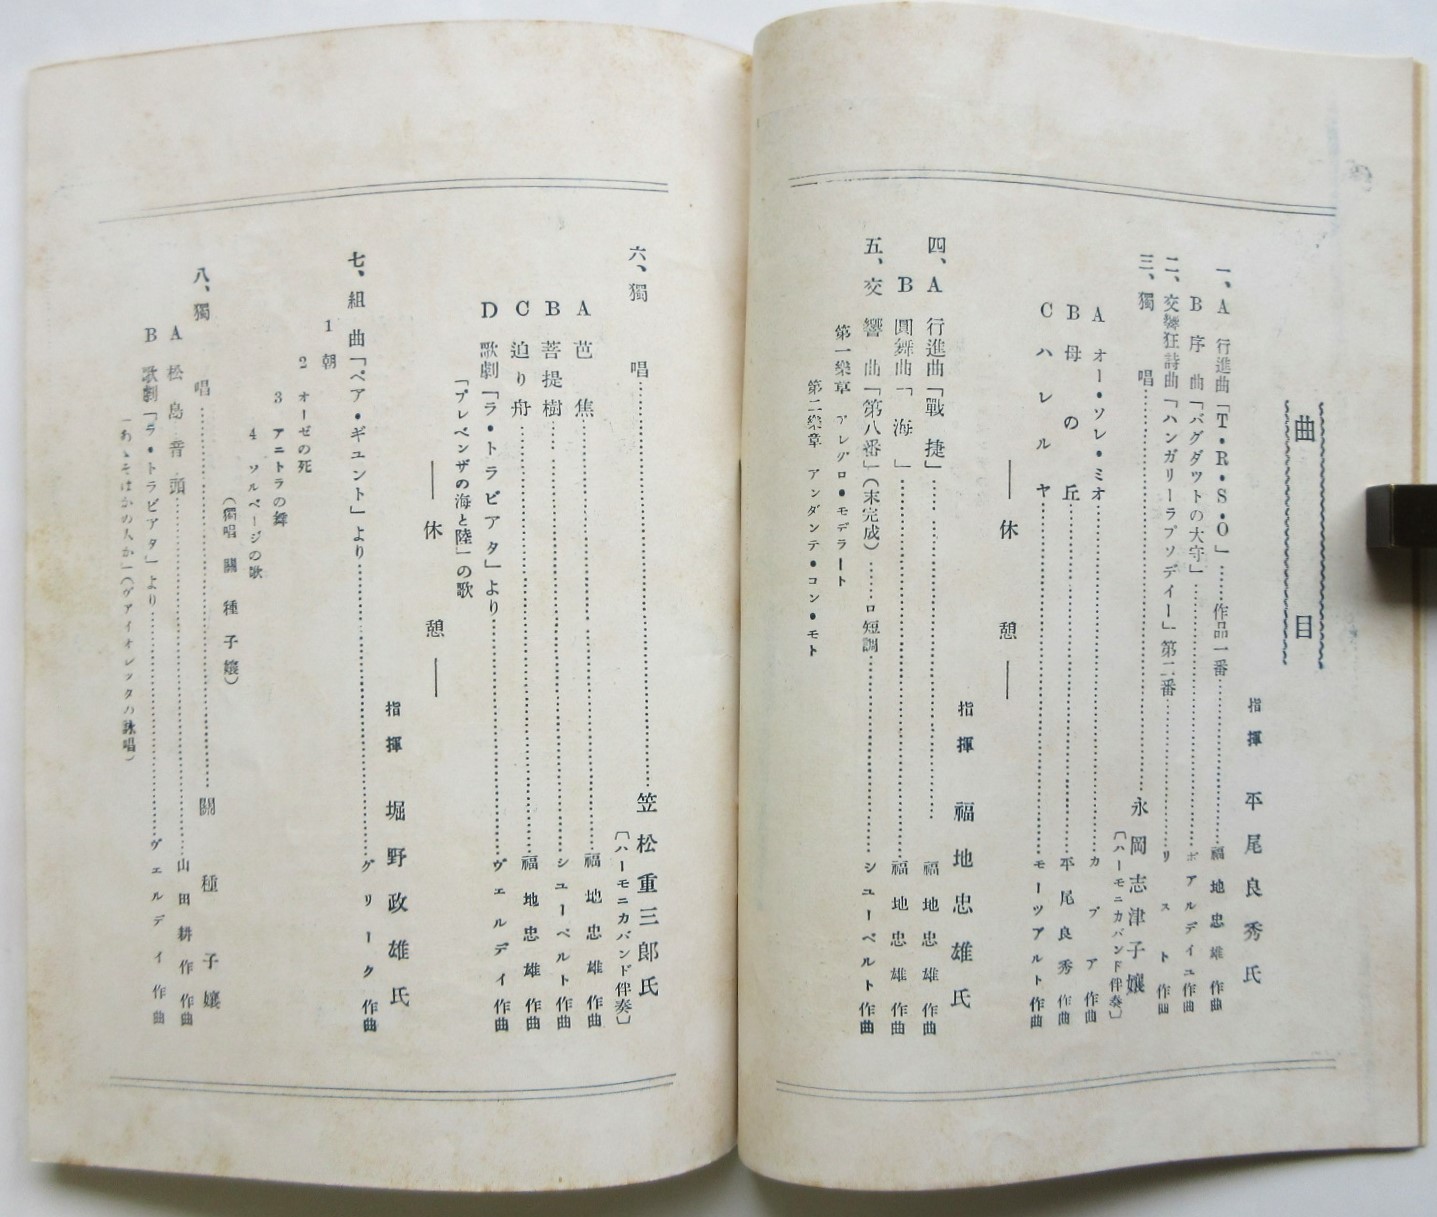 曲目
指揮 平尾良秀氏
一、A 行進曲「T・R・S・O」……作品一番……福地忠雄作曲
B 序曲「バグダットの太守」……ボアルデイユ作曲
二、交響狂詩曲「ハンガリーラプソデイー」第二番……リスト作曲
三、獨唱……永岡志津子孃
〔ハーモニカバンド伴奏〕
A オー・ソレ・ミオ……カプア作曲
B 母の丘……平尾良秀作曲
C ハレルヤ……モーツアルト作曲
——休憩——
指揮 福地忠雄氏
四、A 行進曲「戰捷」……福地忠雄作曲
B 圓舞曲「海」……福地忠雄作曲
五、交響曲「第八番」(末完成)……ロ短調……シユーベルト作曲
第一樂章 アレグロ・モデラート
第二樂章 アンダンテ・コン・モト
六、獨唱……笠松重三郎氏
〔ハーモニカバンド伴奏〕
A 芭焦……福地忠雄作曲
B 菩提樹……シユーベルト作曲
C 迫り舟……福地忠雄作曲
D 歌劇「ラ・トラビアタ」より……ヴエルデイ作曲
「プレベンザの海と陸」の歌
——休憩——
指揮 堀野政雄氏
七、組曲「ペア・ギユント」より……グリーク作曲
1 朝
2 オーゼの死
3 アニトラの舞
4 ソルベージの歌
(獨唱 關種子孃)
八、獨唱……關種子孃
A 松島音頭……山田耕作作曲
B 歌劇「ラ・トラビアタ」より……ヴエルデイ作曲
「あゝそはかの人か」(ヴアイオレツタの詠唱)